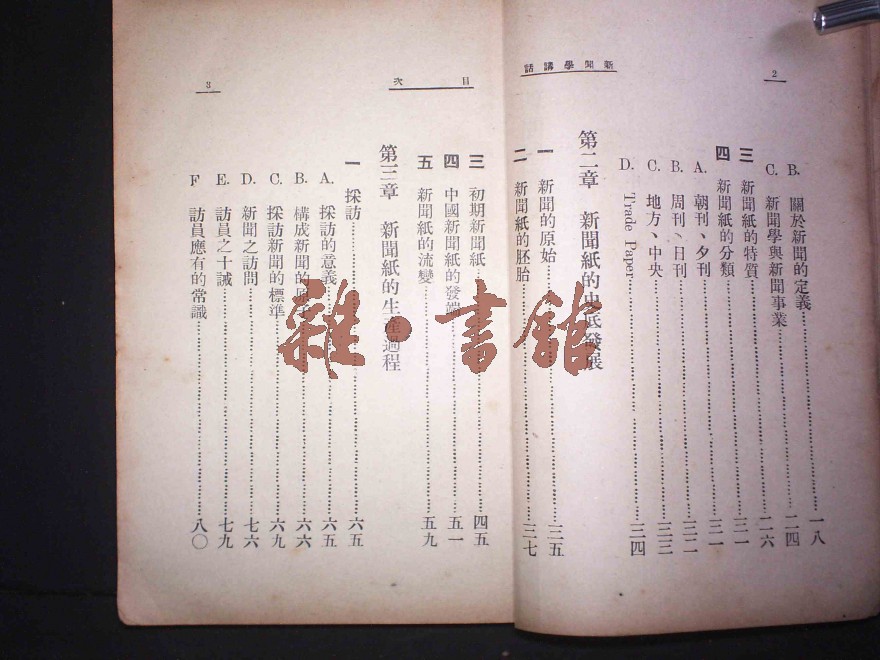 2
新聞學講話
B. 關於新聞的定義……一八
C. 新聞學與新聞事業……二四
三 新聞紙的特質……二六
四 新聞紙的分類……三一
A. 朝刊、夕刊……三一
B. 周刊、日刊……三二
C. 地方、中央……三三
D. Trade Paper……三四
第二章 新聞紙的史底發展
一 新聞的原始……三五
二 新聞紙的胚胎……三七
目次
3
三 初期新聞紙……四五
四 中國新聞紙的發端……五一
五 新聞紙的流變……五九
第三章 新聞紙的生產過程
一 採訪……六五
A. 採訪的意義……六五
B. 構成新聞的……六六
C. 採訪新聞的標準……六九
D. 新聞之訪問……七六
E. 訪員之十誡……七九
F 訪員應有的常識……八〇
雜·書館